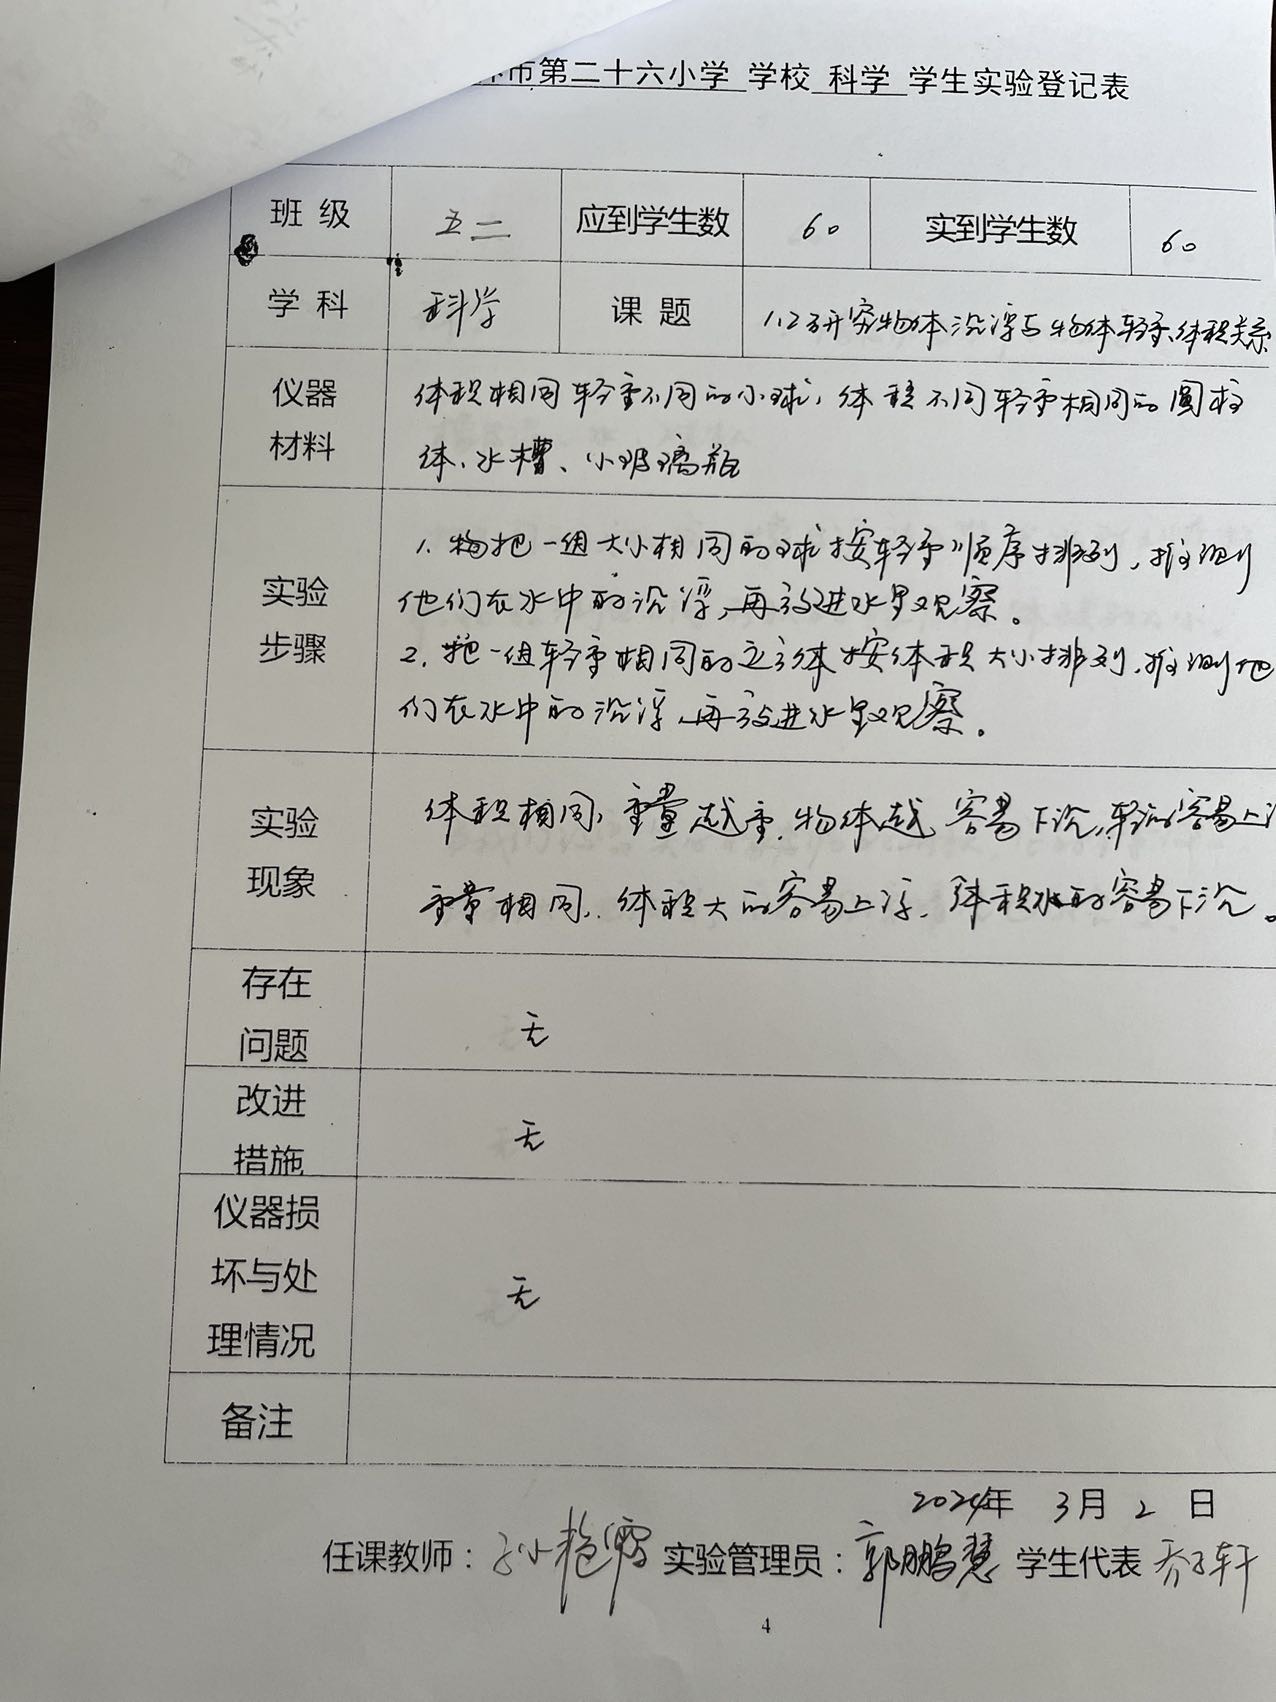 市第二十六小学 学校 科学 学生实验登记表
班 级 五二 应到学生数 60 实到学生数 60
学 科 科学 课 题 1.2研究物体沉浮与物体轻重、体积关系
仪器材料 体积相同轻重不同的小球、体积不同轻重相同的圆柱
体、水槽、小玻璃瓶
实验步骤 1. 把一组大小相同的球按轻重顺序排列,推测
他们在水中的沉浮,再放进水里观察。
2. 把一组轻重相同的立方体按体积大小排列,推测他
们在水中的沉浮,再放进水里观察。
实验现象 体积相同,重量越重,物体越容易下沉,轻的容易上
重量相同,体积大的容易上浮,体积小的容易下沉。
存在问题 无
改进措施 无
仪器损坏与处理情况 无
备注
2024年 3月 2 日
任课教师:孙艳霞 实验管理员:郭鹏慧 学生代表 乔子轩
4